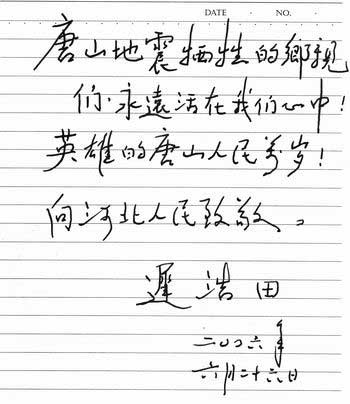 DATE NO.
唐山地震牺牲的鄉親
们永遠活在我们心中!
英雄的唐山人民万岁!
向河北人民致敬。
遲浩田
二〇〇六年
六月二十六日